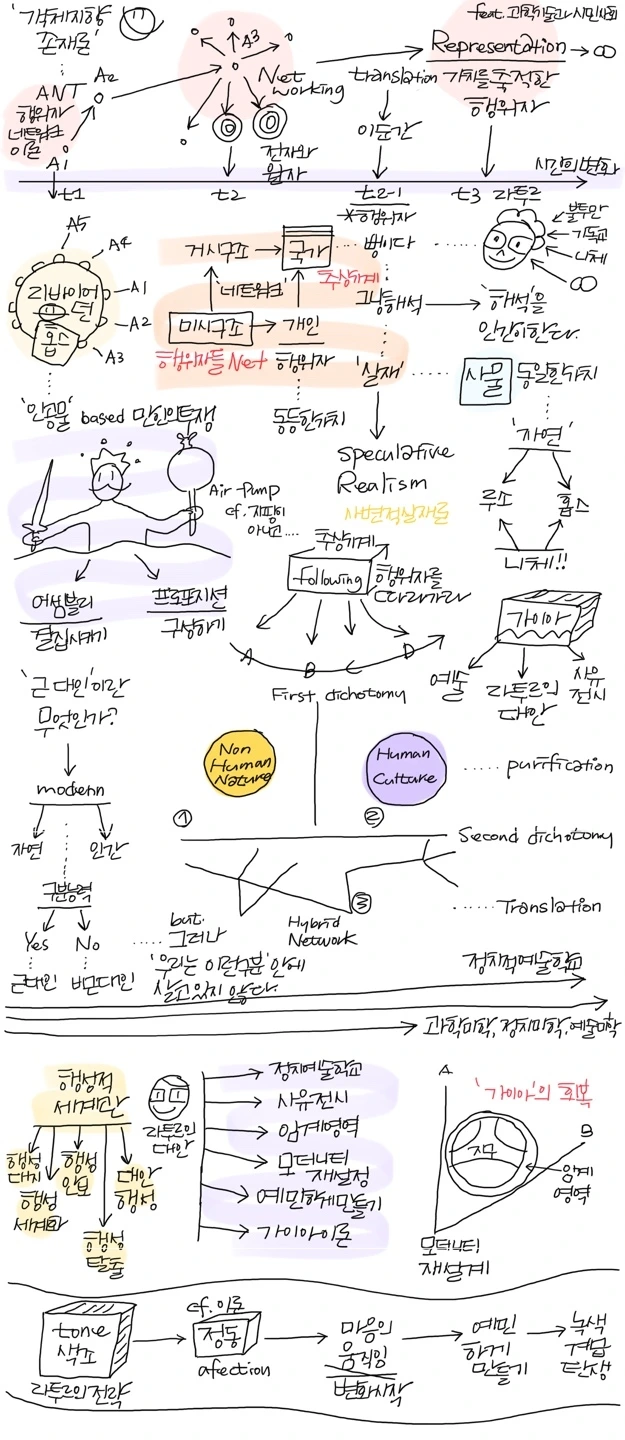 '객체지향
존재론'
feat. 과학기술과 시민사회
ANT
행위자
네트워크
이론
A1
A2
A3
Net
working
전자와
원자
translation
이순간
Representation
가치를 축적한
행위자
∞
시간의 변화
t1
t2
t2-1
t3
라투르
A5
A4
A1
A2
A3
리바이어
던
홉스
거시구조
국가
'네트워크'
추상기계
미시구조
개인
행위자들 Net
행위자
동등한가치
*행위자
뿐이다
그냥해석
'해석'을
인간이한다.
'실재'
사물
동일한가치
기독교
니체
∞
'인공물'
based 만인의투쟁
Air-Pump
cf. 지팡이
아니고....
speculative
Realism
사변적실재론
'자연'
루소
홉스
니체!!
어셈블리
결집시키기
프로포지션
구성하기
추상기계
following
행위자를
따라가라
A
B
C
D
가이아
예술
라투르의
대안
사유
전시
'근대인'이란
무엇인가?
modern
자연
인간
구분능력
Yes
No
근대인
비근대인
First dichotomy
Non
Human
Nature
Human
Culture
purification
①
②
Second dichotomy
③
Hybrid
Network
Translation
but.
그러나
'우리는 이런구분'안에
살고있지 않다.
정치적예술학교
과학미학, 정치미학, 예술미학
행성적
세계관
행성
대치
행성
세계화
행성
안보
행성
탈출
대안
행성
라투르의
대안
정치예술학교
사유전시
임계영역
모더니티
재설정
예민하게만들기
가이아이론
'가이아'의 회복
A
B
지구
임계
영역
모더니티
재설계
tone
색조
라투르의전략
cf. 이론
정동
afection
마음의
움직임
변화시작
예민
하게
만들기
녹색
계급
탄생